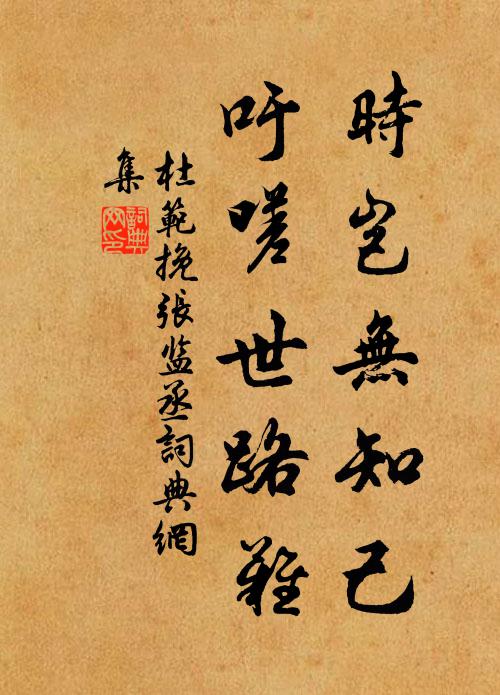 時豈無知己
吁嗟世路難
杜範挽張監丞詞典網
集
詞典
网印